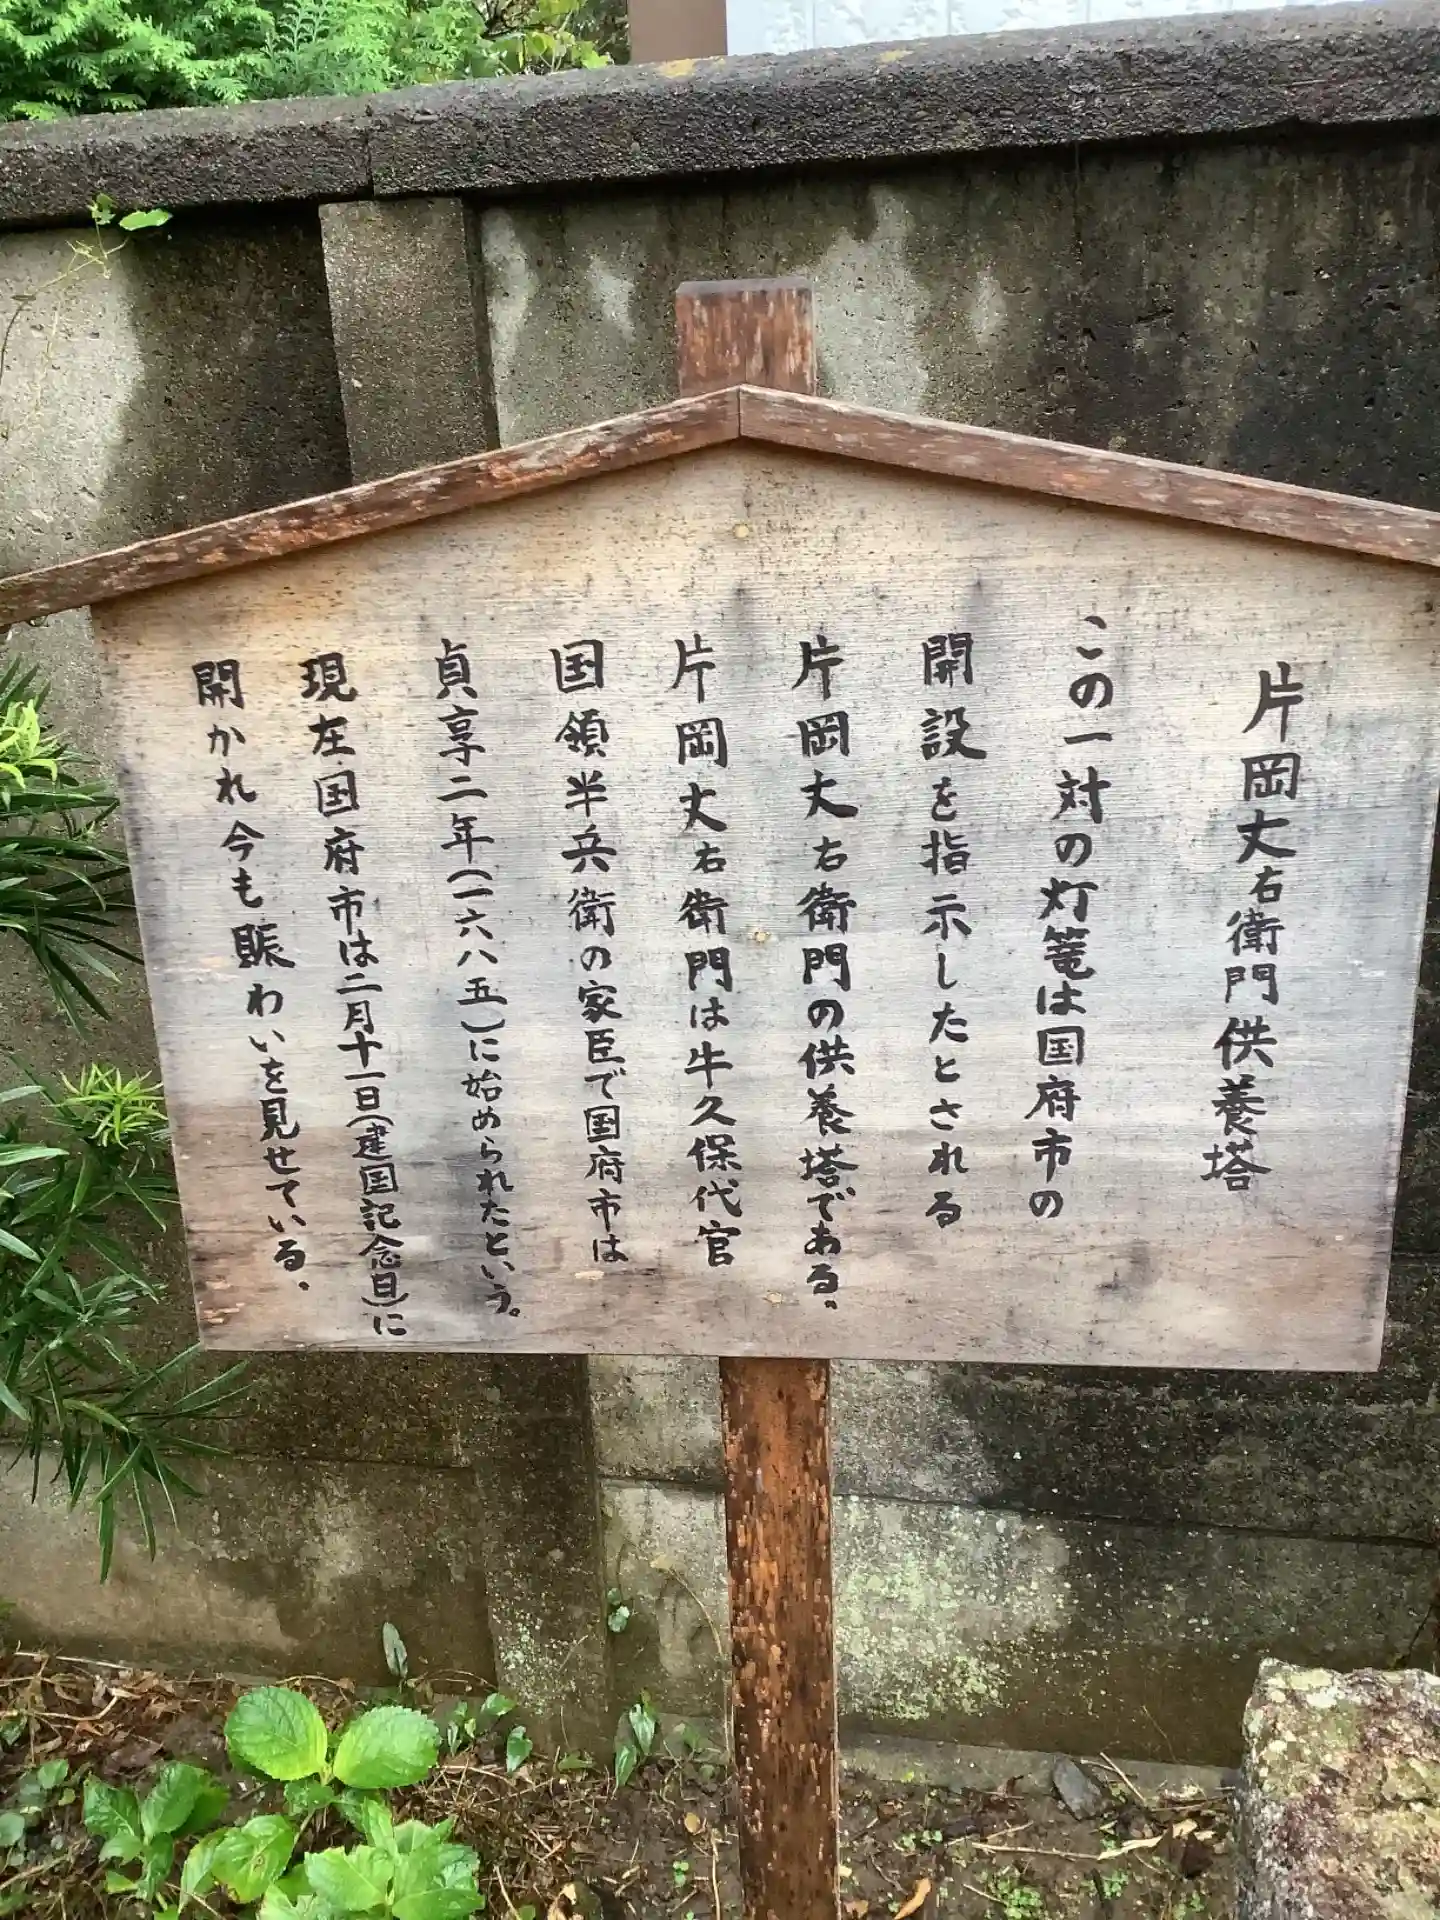 片岡丈右衛門供養塔
この一対の灯篭は国府市の
開設を指示したとされる
片岡丈右衛門の供養塔である。
片岡丈右衛門は牛久保代官
国領半兵衛の家臣で国府市は
貞享二年(一六八五)に始められたという。
現在国府市は二月十一日(建国記念日)に
開かれ今も賑わいを見せている、